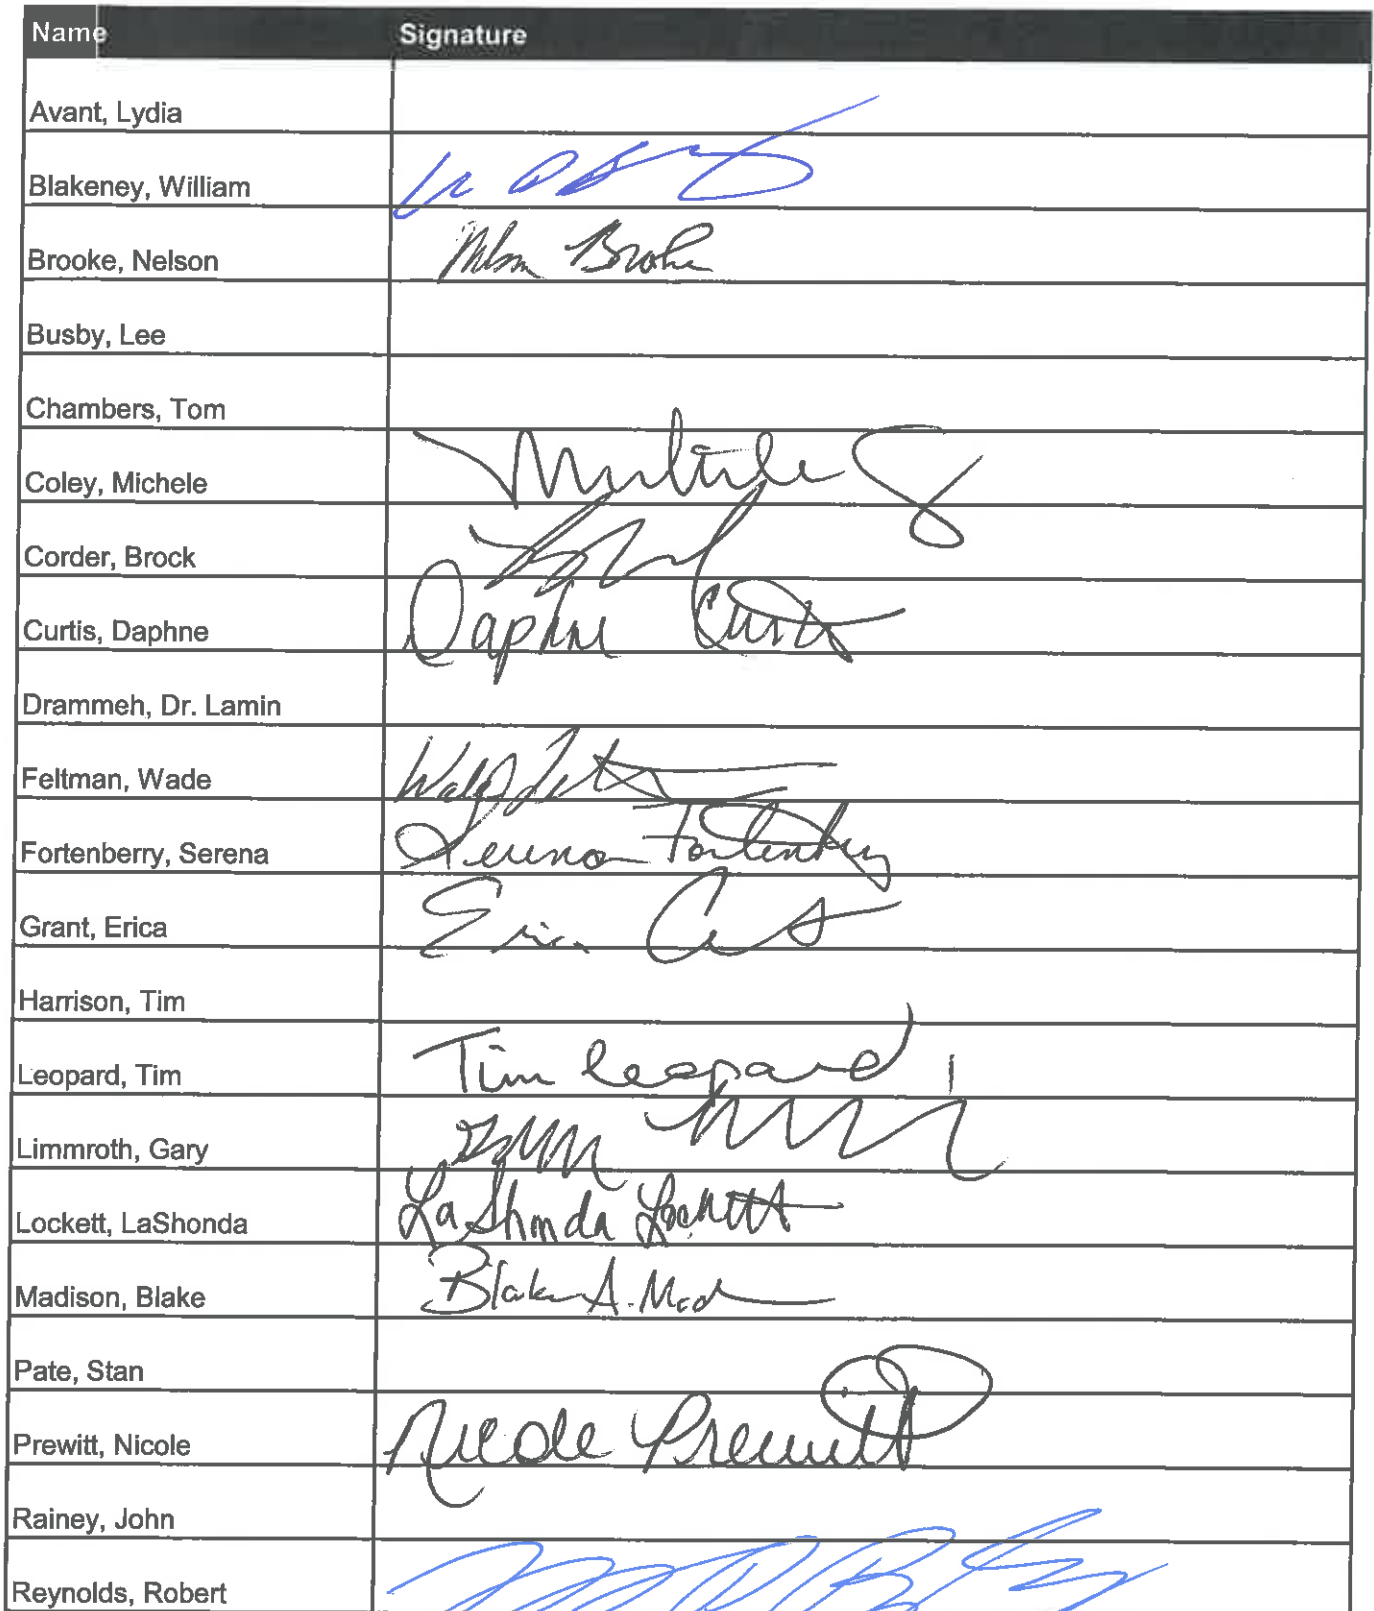 Name Signature
Avant, Lydia
Blakeney, William
Brooke, Nelson Nelson Brooke
Busby, Lee
Chambers, Tom
Coley, Michele Michele
Corder, Brock
Curtis, Daphne Daphne Curtis
Drammeh, Dr. Lamin
Feltman, Wade
Fortenberry, Serena Serena Fortenberry
Grant, Erica Erica
Harrison, Tim
Leopard, Tim Tim Leopard
Limmroth, Gary
Lockett, LaShonda LaShonda Lockett
Madison, Blake Blake A. Mad
Pate, Stan
Prewitt, Nicole Nicole Prewitt
Rainey, John
Reynolds, Robert